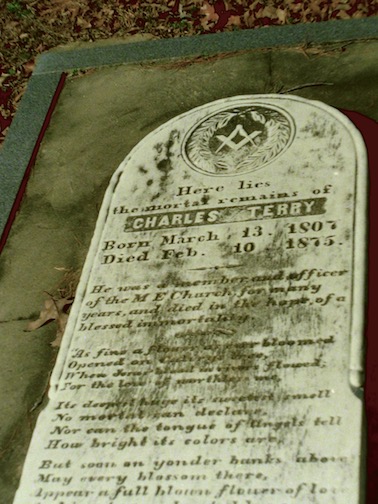 Here lies
the mortal remains of
CHARLES TERRY
Born March, 13. 1807
Died Feb. 10 1875.
He was a member and officer
of the M E Church, for many
years, and died in the hope, of a
blessed immortality.
As fine a flower as ever bloomed
Opened on tree,
When Jesus blood in rivers flowed,
For the love of worthless me,
Its deepest huge its sweetest smell
No mortal can declare,
Nor can the tongue of Angels tell
How bright its colors are,
But soon on yonder banks above
May every blossom there,
Appear a full blown flower of love